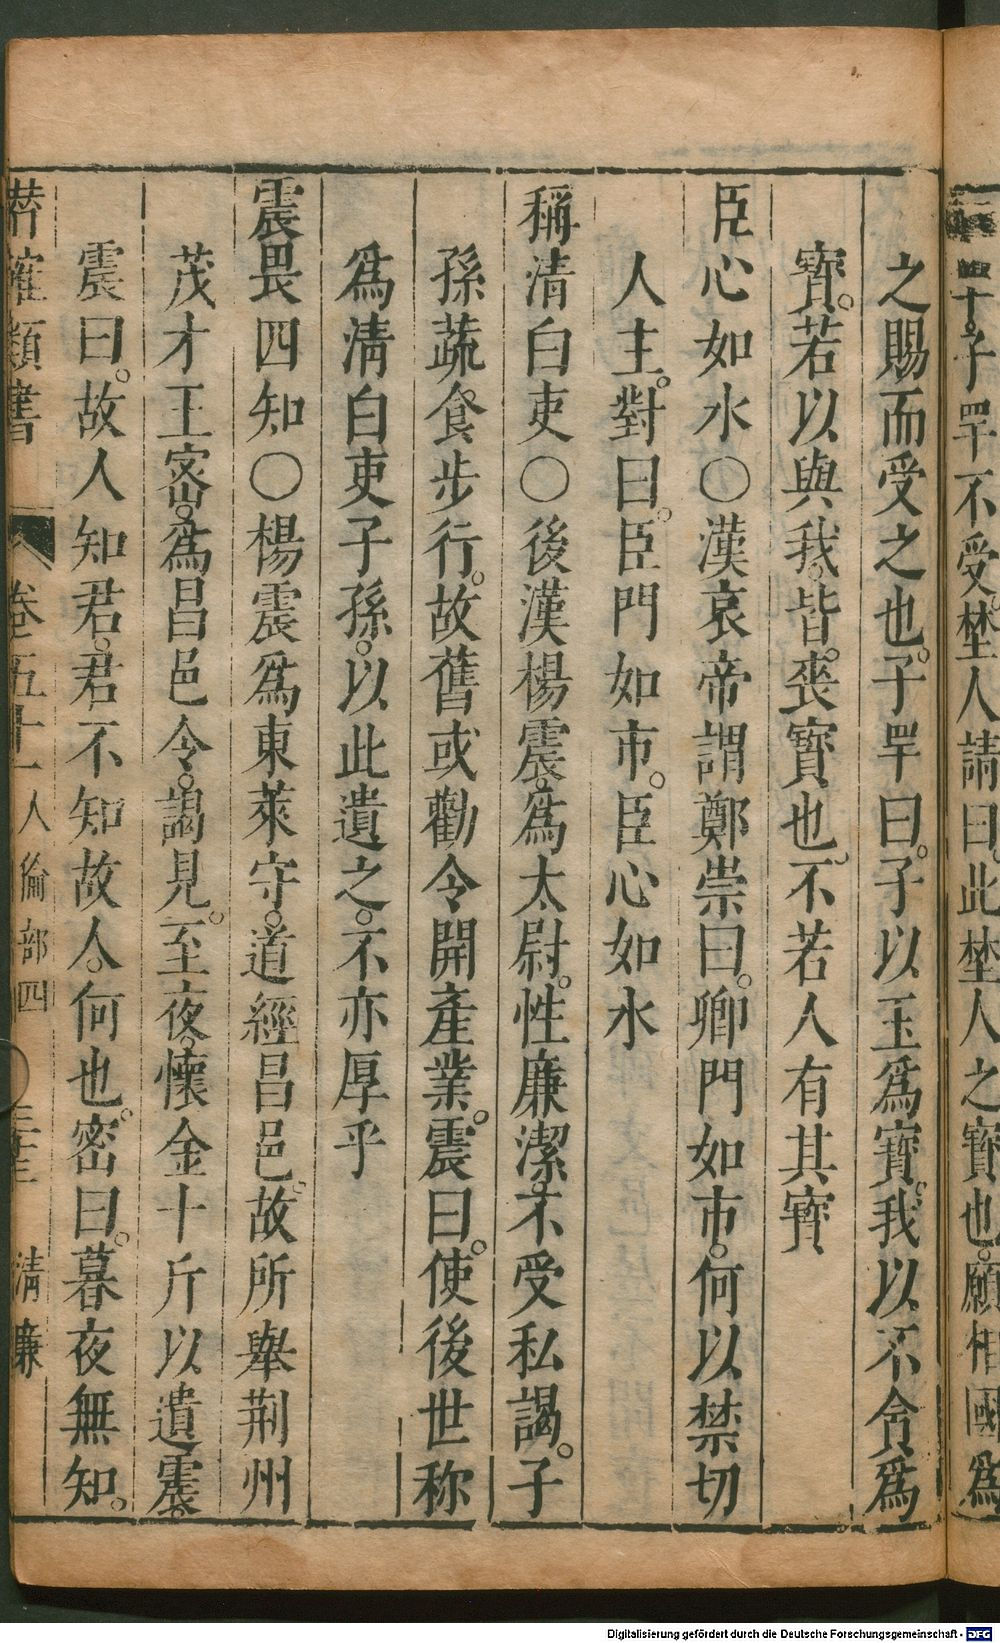 十。子罕不受。埜人請曰。此埜人之寳也。願相國爲
之賜而受之也。子罕曰。子以玉爲寳。我以不貪爲
寳。若以與我。皆喪寳也。不若人有其寳
臣心如水〇漢哀帝謂鄭崇曰。卿門如市。何以禁切
人主。對曰。臣門如市。臣心如水
稱清白吏〇後漢楊震。爲太尉。性廉潔。不受私謁。子
孫蔬食步行。故舊或勸令開產業。震曰。使後世称
爲清白吏子孫。以此遺之。不亦厚乎
震畏四知〇楊震爲東萊守。道經昌邑。故所舉荆州
茂才王密。爲昌邑令。謁見。至夜。懷金十斤以遺震。
震曰。故人知君。君不知故人。何也。密曰。暮夜無知。
類書 卷五十一 人倫部四 清廉
Digitalisierung gefördert durch die Deutsche Forschungsgemeinschaft - DFG